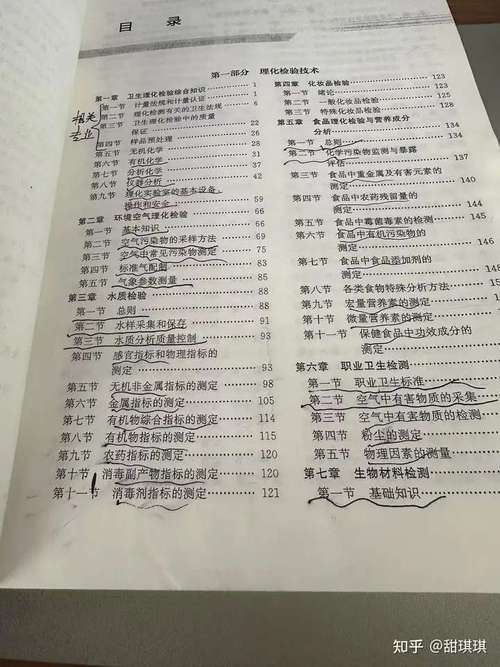 目 录
第一部分 理化检验技术
第一章 卫生理化检验综合知识 1
第一节 计量法规和计量认证 1
第二节 理化检测有关的卫生法规 6
第三节 卫生理化检验中的质量
保证 22
第四节 样品预处理 26
第五节 无机化学 28
第六节 有机化学 31
第七节 分析化学 37
第八节 仪器分析 42
第九节 理化实验室的基本设备、
操作和安全 59
第二章 环境空气理化检验 66
第一节 基本知识 66
第二节 空气污染物的采样方法 69
第三节 空气中常见污染物测定 75
第四节 标准气配制 83
第五节 气象参数测量 85
第三章 水质检验 88
第一节 总则 88
第二节 水样采集和保存 91
第三节 水质分析质量控制 93
第四节 感官指标和物理指标的
测定 93
第五节 无机非金属指标的测定 98
第六节 金属指标的测定 105
第七节 有机物综合指标的测定 114
第八节 有机物指标的测定 115
第九节 农药指标的测定 120
第十节 消毒副产物指标的测定 120
第十一节 消毒剂指标的测定 121
相关
专业
第四章 化妆品检验 123
第一节 绪论 123
第二节 一般化妆品检验 125
第三节 特殊化妆品检验 128
第五章 食品理化检验与营养成分
分析 134
第一节 总则 134
第二节 化学污染物监测与暴露
评估 137
第三节 食品中重金属及有害元素的
测定 140
第四节 食品中农药残留量的
测定
第五节 食品中霉菌毒素的检测 145
第六节 食品中有机污染物的
测定 146
第七节 食品中食品添加剂的
测定
第八节 各类食物特殊分析方法
第九节 宏量营养素的测定
第十节 微量营养素的测定
第十一节 保健食品中功效成分的
测定
第六章 职业卫生检测
第一节 职业卫生标准
第二节 空气中有害物质的采集
第三节 空气中有害物质的检测
第四节 粉尘的测定
第五节 物理因素的测量
第七章 生物材料检测
第一节 基础知识
知乎 @甜琪琪